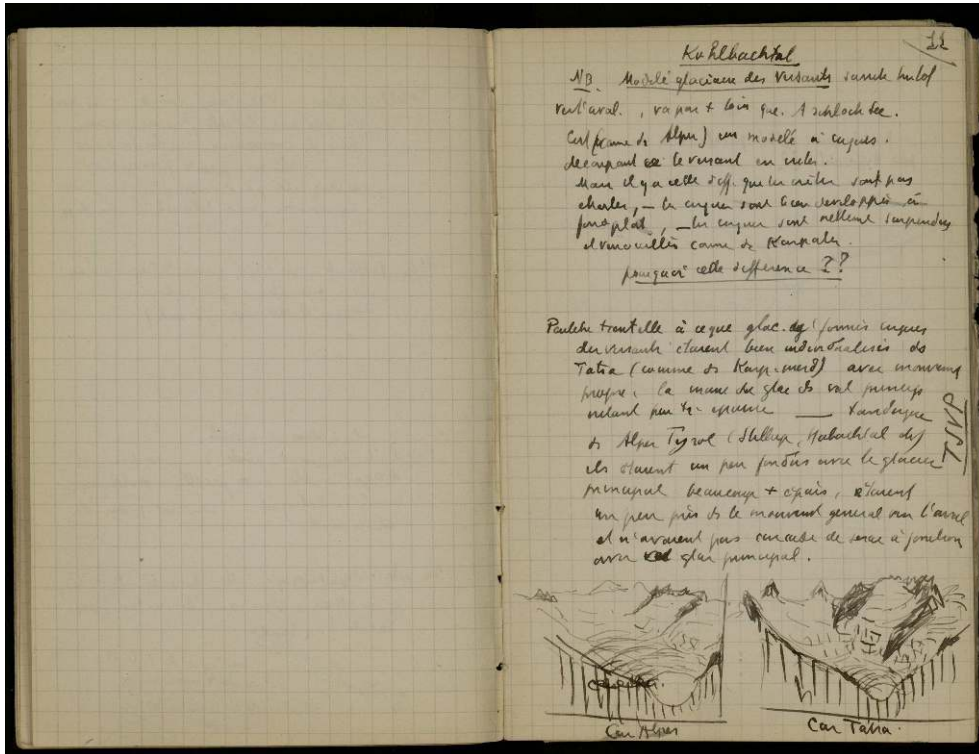 22
Kohlbachtal
NB. Modelé glaciaire des versants
vers l'aval., va pas + loin que. A schlochtee.
C'est (comme ds Alpes) un modelé à cirques.
découpant le versant en
Mais il y a cette diff. que les crêtes sont pas
, — les cirques sont bien developpés à
fond plat, — les cirques sont nettement suspendus
et verrouillés comme ds Karpates.
pourquoi cette difference ??
Peutetre tient elle à ce que glac. qui formés cirques
des versants étaient bien individualisés ds
Tatra (comme ds Karp. merid) avec mouvement
propre, la masse de glace ds val princip
n'étant pas tr. épaisse — tandis que
ds Alpes Tyrol (Stillup, Habachtal
ils étaient un peu fondus avec le glacier
principal beaucoup + épais, étaient
un peu pris ds le mouvement general vers l'aval
et n'avaient pas cascade de serac à jonction
avec glac principal.
TSVP
Cas Alpes
Cas Tatra.